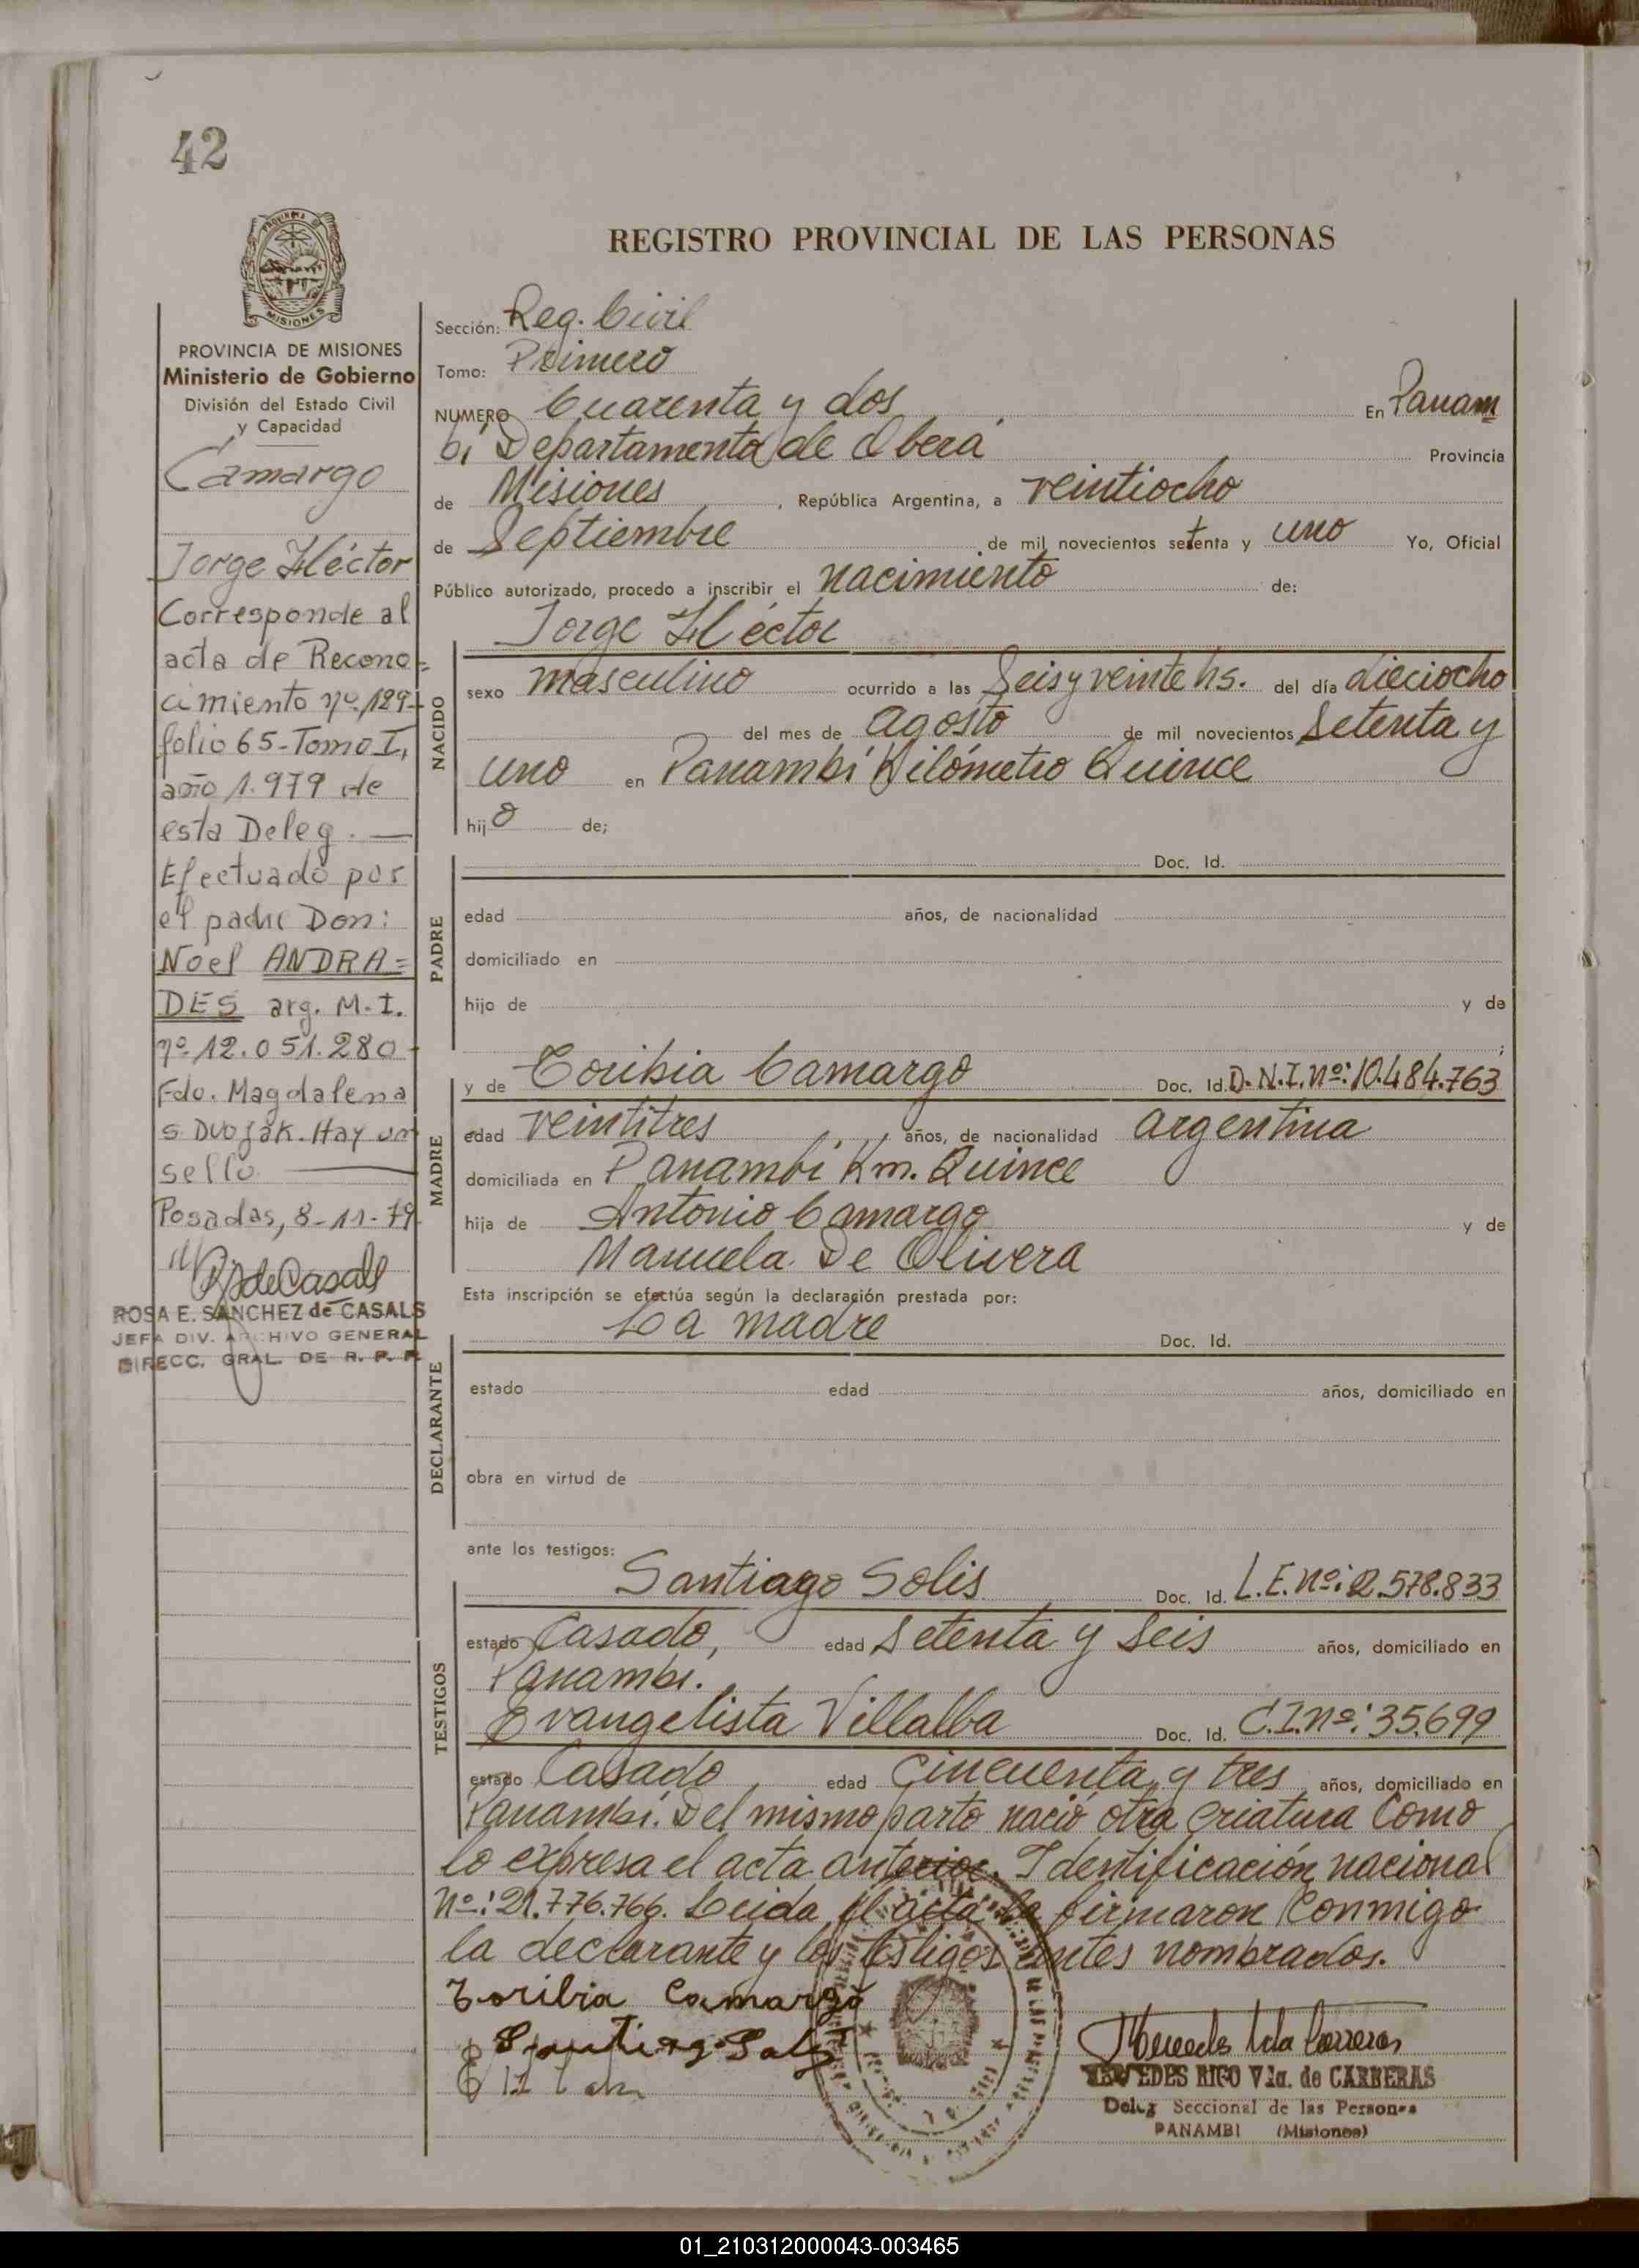 42
REGISTRO PROVINCIAL DE LAS PERSONAS
PROVINCIA DE MISIONES
Ministerio de Gobierno
División del Estado Civil
y Capacidad
Camargo
Jorge Héctor
Corresponde al
acta de Recono=
cimiento nº 129-
folio 65-Tomo I,
año 1.979 de
esta Deleg.
Efectuado por
el padre Don:
Noel ANDRA=
DES arg. M.I.
nº 12.051.280-
Fdo. Magdalena
S Dvojak. Hay un
sello
Posadas, 8-11-79
RSdeCasals
ROSA E. SANCHEZ de CASALS
JEFA DIV. ARCHIVO GENERAL
DIRECC. GRAL. DE R. P. P.
Sección: Reg. Civil
Tomo: Primero
NUMERO Cuarenta y dos En Panam
bí Departamento de Oberá Provincia
de Misiones, República Argentina, a veintiocho
de Septiembre de mil novecientos setenta y uno Yo, Oficial
Público autorizado, procedo a inscribir el nacimiento de:
Jorge Héctor
NACIDO
sexo masculino ocurrido a las Seis y veinte hs. del día dieciocho
del mes de agosto de mil novecientos Setenta y
uno en Panambí Kilómetro Quince
hijo de;
PADRE
Doc. Id.
edad años, de nacionalidad
domiciliado en
hijo de y de
MADRE
y de Toribia Camargo Doc. Id. D.N.I.nº: 10.484.763
edad veintitres años, de nacionalidad argentina
domiciliada en Panambí Km. Quince
hija de Antonio Camargo y de
Manuela De Olivera
Esta inscripción se efectúa según la declaración prestada por:
DECLARANTE
La madre Doc. Id.
estado edad años, domiciliado en
obra en virtud de
ante los testigos:
TESTIGOS
Santiago Solis Doc. Id. L.E.nº: 2.578.833
estado Casado, edad Setenta y Seis años, domiciliado en
Panambí.
Evangelista Villalba Doc. Id. C.I.nº: 35.699
estado Casado edad Cincuenta y tres años, domiciliado en
Panambí. Del mismo parto nació otra criatura Como
lo expresa el acta anterior. Identificación nacional
Nº: 21.776.766. Leida el acta la firmaron Conmigo
la declarante y los testigos antes nombrados.
Toribia Camargo
Santiago Solis
Mercedes Vda Carreras
MERCEDES RICO Vda. de CARRERAS
Deleg Seccional de las Personas
PANAMBI (Misiones)
01_210312000043-003465